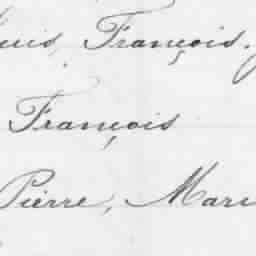 François.
François
Pierre, Mari